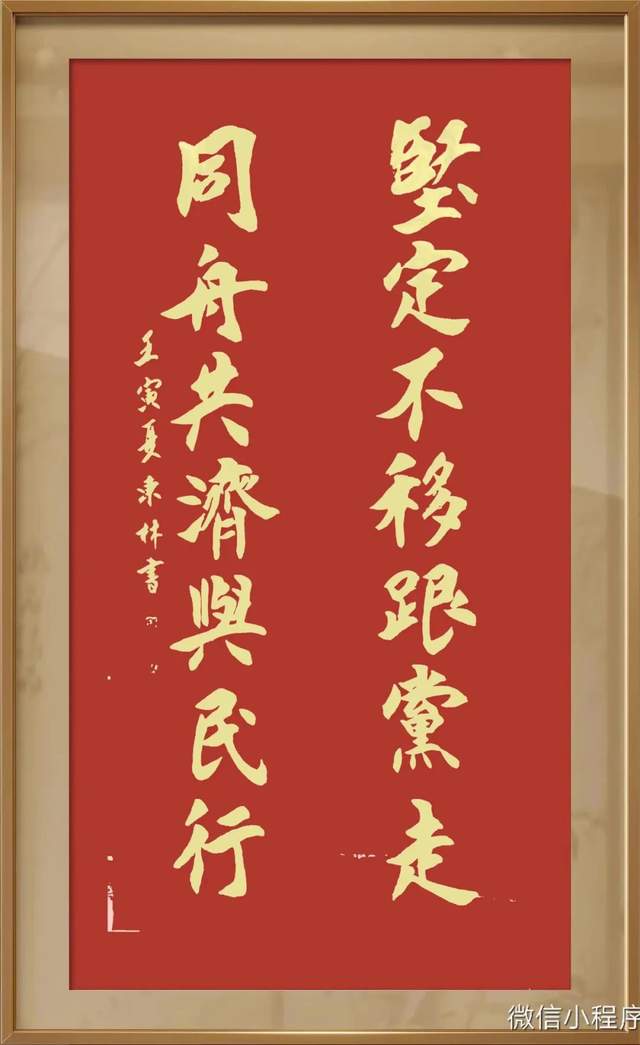 堅定不移跟黨走
同舟共濟與民行
壬寅夏東林書
微信小程序